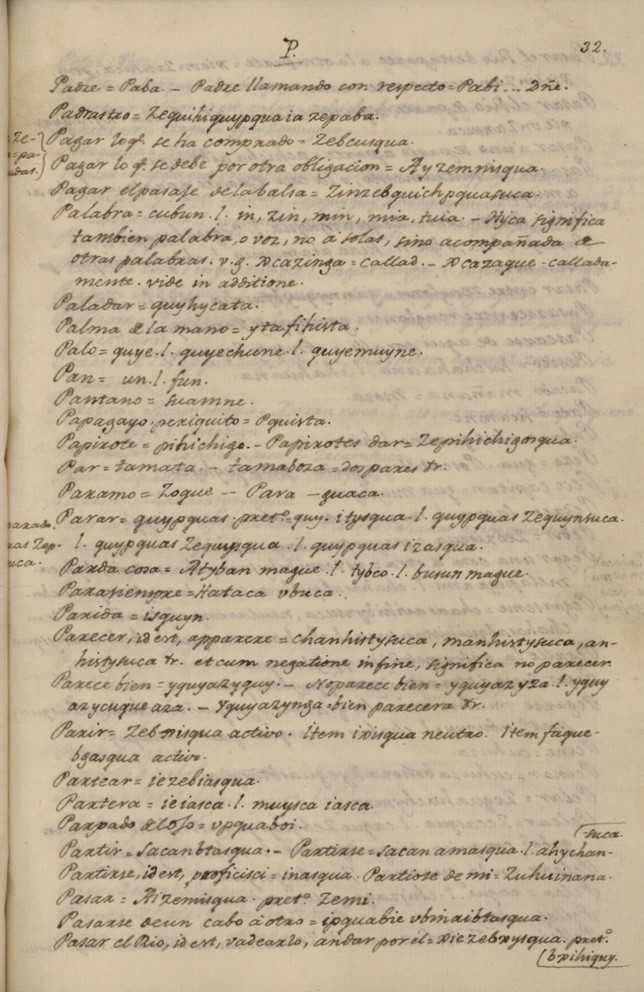 P. 32.
Padre = Paba. - Padre llamando con respecto = Pabi... Dñe.
Padrastro = Zequihiquypqua ia zepaba.
Pagar lo q̃. se ha comprado = Zebcusqua.
Pagar lo q̃. se debe por otra obligacion = Ayzemnisqua.
Pagar el pasaje de la balsa = Zinzebquichpquasuca.
Palabra = cubun. l. in, zin, min, mia, tuia. - Hyca significa
tambien palabra, o voz, no à solas, sino acompañada de
otras palabras. v.g. Xcazinga = callad. - Xcazaque - callada-
mente. vide in additione.
Paladar = quyhycata.
Palma de la mano = ytafihista.
Palo = quye. l. quyechune. l. quyemuyne.
Pan = un. l. fun.
Pantano = suamne.
Papagayo, periquito = Pquista.
Papirote = pihichigo. - Papirotes dar = Zepihichigosqua.
Par = tamata. - tamaboza = dos pares &r.
Paramo = Zoque - Para - guaca.
Parar = quypquas. pret.º = quy. itysqua. l. quypquas Zequynsuca.
l. quypquas Zequypqua. l. quypquas izasqua.
Parda cosa = Atyban mague. l. tybco. l. busun mague.
Parasiempre = Hataca ubuca.
Parida = isquyn.
Parecer, id est, apparere = chanhistysuca, manhistysuca, an-
histysuca &r. et cum negatione in fine, significa no parecer.
Parece bien = yquyazyquy. - No parece bien = yquyaz yza. l. yquy
azycuque aza. - Yquyazynga = bien parecera &r.
Parir = Zebxisqua activo. item ixisqua neutro. item faque-
bgasqua activo.
Partear = iezebiasqua.
Partera = ieiasca. l. muysca iasca.
Parpado del ojo = upquaboi.
suca.
Partir = Sacanbtasqua. - Partirse = sacan amasqua. l. ahychan-
Partirse, id est, proficisci = inasqua. Partiose de mi = Zuhuinana.
Pasar = Aizemisqua. pret.º Zemi.
Pasarse de un cabo à otro = ipquabie ubinaibtasqua.
Pasar el Rio, id est, vadearlo, andar por él = Xiezebxysqua. pret.º
bxihiquy.